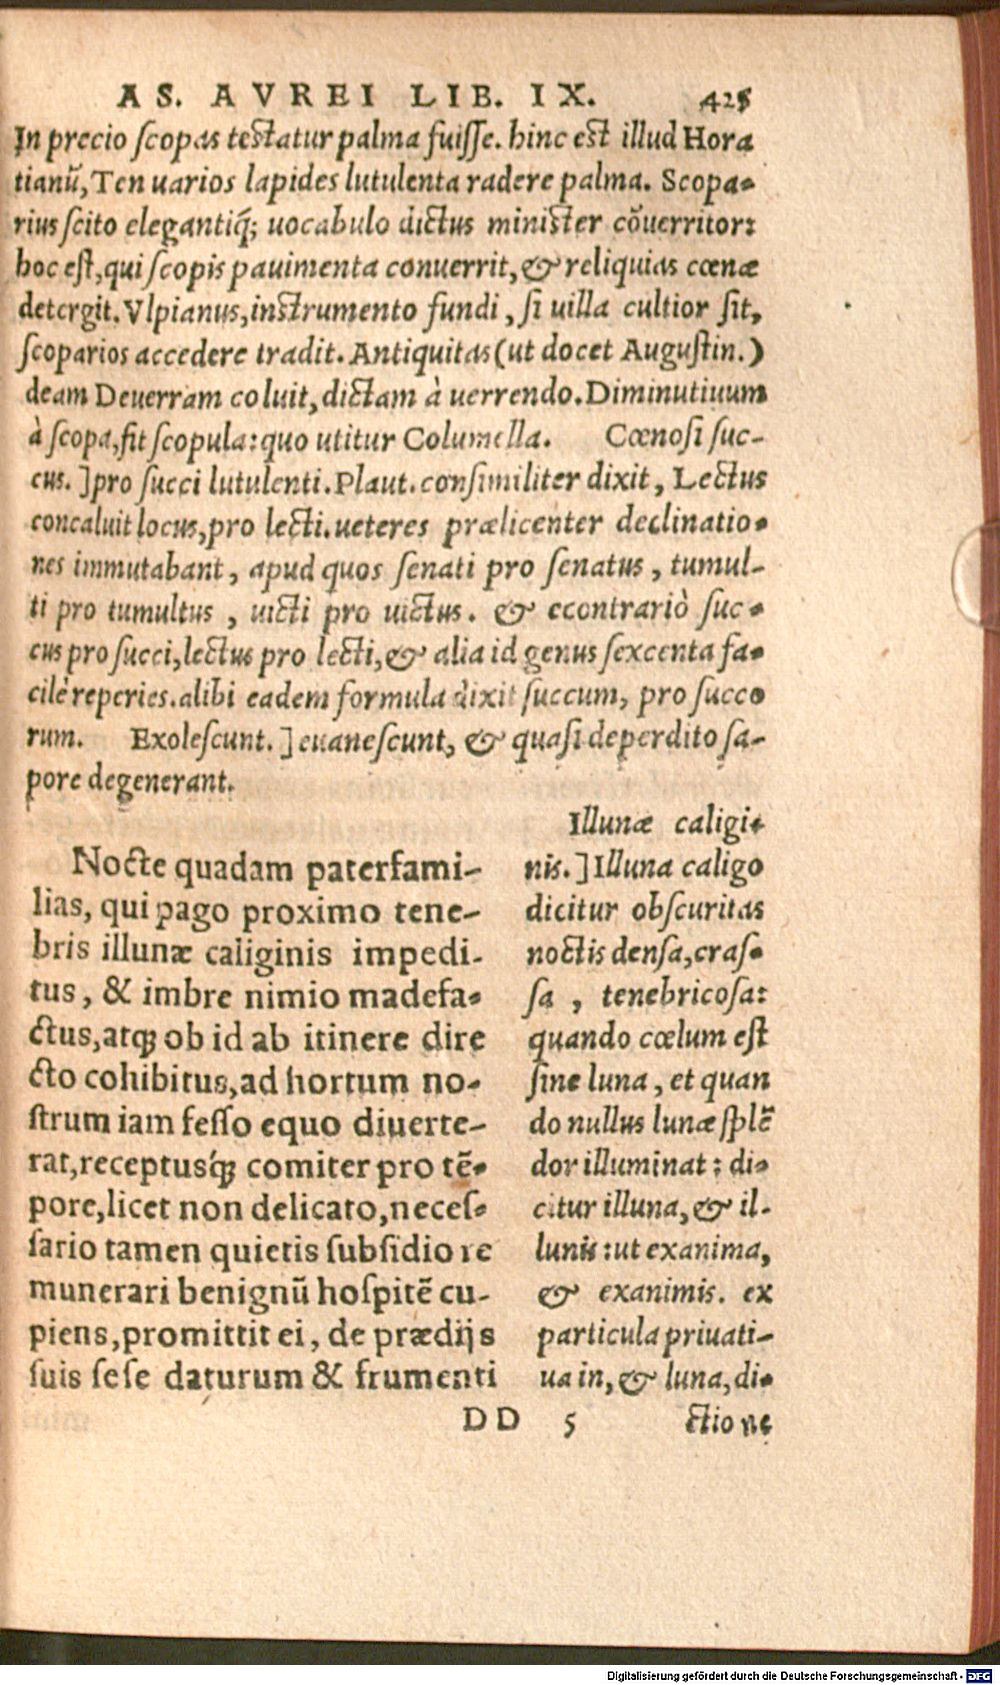 AS. AVREI LIB. IX. 425
In precio ſcopas teſtatur palma fuiſſe. hinc eſt illud Hora
tianũ, Ten uarios lapides lutulenta radere palma. Scopa-
rius ſcito elegantiq́; uocabulo dictus miniſter cõuerritor:
hoc eſt, qui ſcopis pauimenta conuerrit, & reliquias cœnæ
detergit. Vlpianus, inſtrumento fundi, ſi uilla cultior ſit,
ſcoparios accedere tradit. Antiquitas (ut docet Auguſtin.)
deam Deuerram coluit, dictam à uerrendo. Diminutiuum
à ſcopa, fit ſcopula: quo utitur Columella. Cœnoſi ſuc-
cus.] pro ſucci lutulenti. Plaut. conſimiliter dixit, Lectus
concaluit locus, pro lecti. ueteres prælicenter declinatio-
nes immutabant, apud quos ſenati pro ſenatus, tumul-
ti pro tumultus, uicti pro uictus. & econtrariò ſuc-
cus pro ſucci, lectus pro lecti, & alia id genus ſexcenta fa-
cilè reperies. alibi eadem formula dixit ſuccum, pro ſucco
rum. Exoleſcunt.] euaneſcunt, & quaſi deperdito ſa-
pore degenerant.
Nocte quadam paterfami-
lias, qui pago proximo tene-
bris illunæ caliginis impedi-
tus, & imbre nimio madefa-
ctus, atq; ob id ab itinere dire
cto cohibitus, ad hortum no-
ſtrum iam feſſo equo diuerte-
rat, receptusq́; comiter pro tẽ-
pore, licet non delicato, neceſ-
ſario tamen quietis ſubſidio re
munerari benignũ hoſpitẽ cu-
piens, promittit ei, de prædijs
ſuis ſeſe daturum & frumenti
Illunæ caligi-
nis.] Illuna caligo
dicitur obſcuritas
noctis denſa, craſ-
ſa, tenebricoſa:
quando cœlum eſt
ſine luna, et quan
do nullus lunæ ſplẽ
dor illuminat: di-
citur illuna, & il-
lunis: ut exanima,
& exanimis. ex
particula priuati-
ua in, & luna, di-
DD 5 ctione
Digitalisierung gefördert durch die Deutsche Forschungsgemeinschaft - DFG